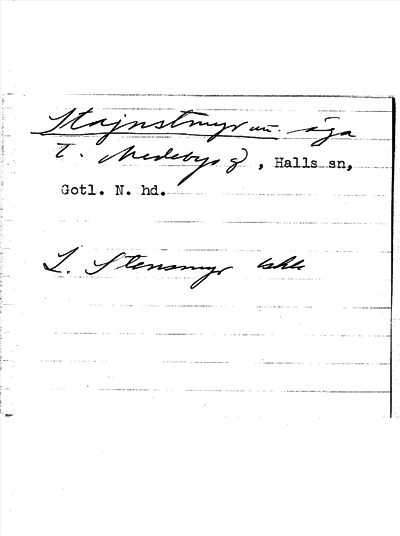 Stajnstmyr un. äga
t. Medebys g, Halls sn,
Gotl. N. hd.
L. Stensmyr